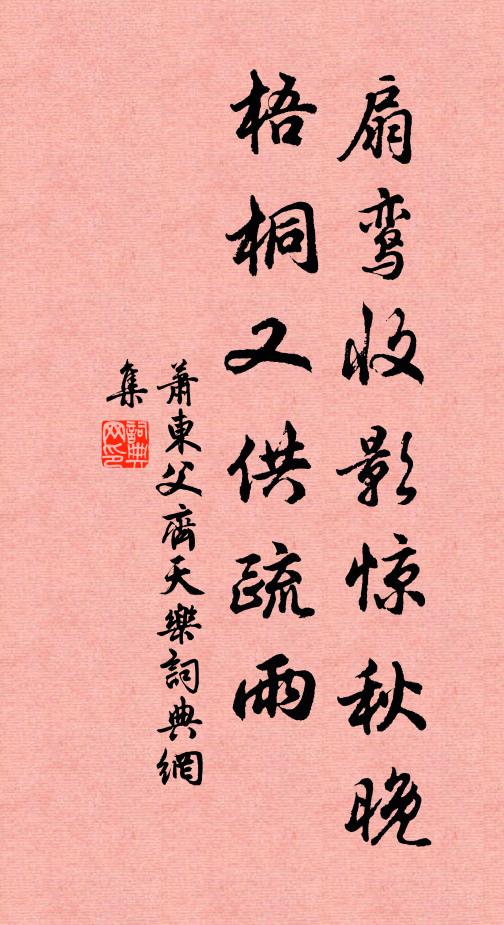 扇鸾收影惊秋晚
梧桐又供疏雨
萧東父齊天樂詞典網
集
詞典網印